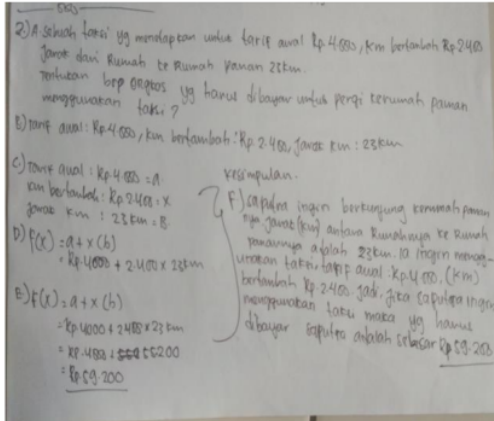 2) A. Sebuah taksi yg menetapkan untuk tarif awal Rp.4.000, km bertambah Rp.2400
Jarak dari Rumah ke Rumah Paman 23km.
Tentukan brp ongkos yg harus dibayar untuk pergi kerumah paman
menggunakan taksi?
B) tarif awal: Rp.4.000, km bertambah: Rp.2.400, Jarak km: 23km
C) Tarif awal: Rp.4.000 = a
km bertambah: Rp.2.400 = x
Jarak km : 23 km = B
D) F(x) = a + x (b)
= Rp.4000 + 2.400 x 23km
E) F(x) = a + x (b)
= Rp.4000 + 2400 x 23 km
= Rp.4000 + 55200
= Rp.59.200
Kesimpulan.
F) Saputra ingin berkunjung kerumah paman
nya. Jarak (km) antara Rumahnya ke Rumah
pamannya adalah 23km. Ia ingin mengg-
unakan taksi, tarif awal: Rp.4.000, (km)
bertambah Rp.2.400. Jadi, jika saputra ingin
menggunakan taksi maka yg harus
dibayar saputra adalah sebesar Rp 59.200